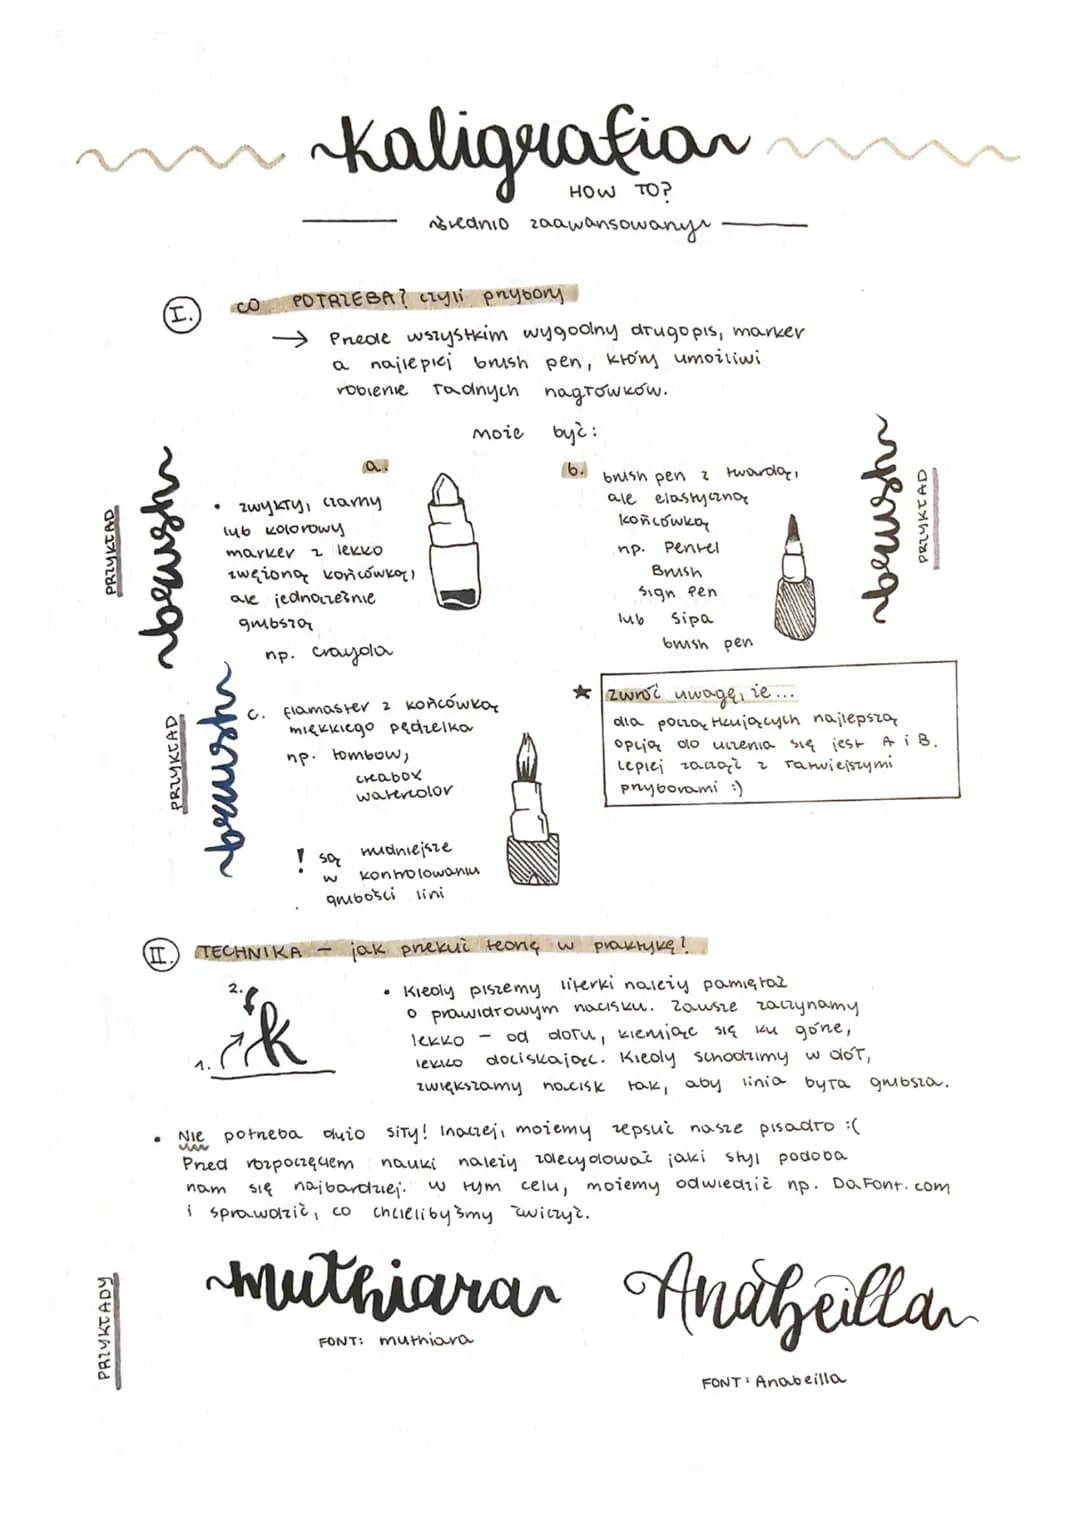 Kaligrafia
HOW TO?
średnio zaawansowany
I. CO POTRZEBA? czyli przybory
→ Przede wszystkim wygodny drugopis, marker
a najlepiej brush pen, który umożliwi
robienie ładnych nagłówków.
może być:
a.
• zwykły, czarny
lub kolorowy
marker z lekko
zwężoną końcówką,
ale jednocześnie
grubszą
np. crayola
PRZYKŁAD
brush
b. brush pen z twardą,
ale elastyczną
końcówką
np. Pentel
Brush
Sign Pen
lub Sipa
brush pen
brush
PRZYKŁAD
c. flamaster z końcówką
miękkiego pędzelka
np. tombow,
creabox
watercolor
! są trudniejsze
w kontrolowaniu
grubości lini
PRZYKŁAD
brush
★ zwróć uwagę, że...
dla początkujących najlepszą
opcją do uczenia się jest A i B.
Lepiej zacząć z łatwiejszymi
przyborami :)
II. TECHNIKA – jak przekuć teorię w praktykę?
2.
1.
k
• Kiedy piszemy literki należy pamiętać
o prawidłowym nacisku. Zawsze zaczynamy
lekko – od dołu, kierując się ku górze,
lekko dociskając. Kiedy schodzimy w dół,
zwiększamy nacisk tak, aby linia była grubsza.
• NIE potrzeba dużo siły! Inaczej, możemy zepsuć nasze pisadło :(
Przed rozpoczęciem nauki należy zdecydować jaki styl podoba
nam się najbardziej. W tym celu, możemy odwiedzić np. DaFont.com
i sprawdzić, co chcielibyśmy ćwiczyć.
PRZYKŁADY
muthiara
FONT: muthiara
Anabeilla
FONT: Anabeilla